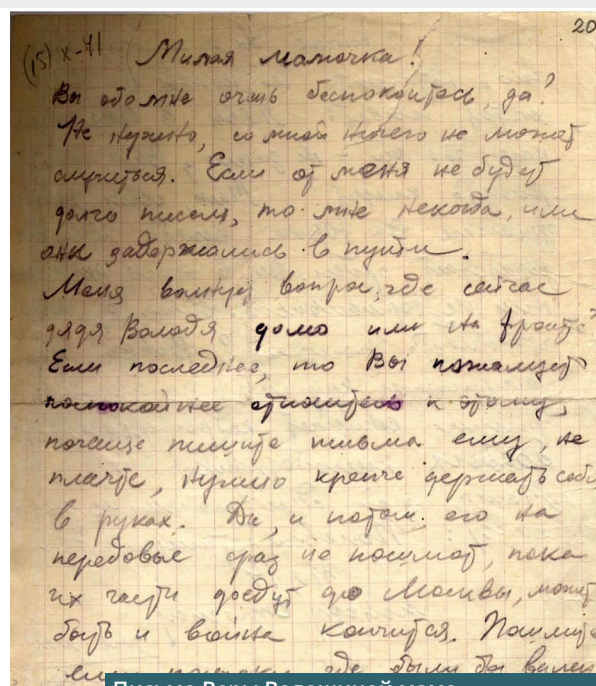 20
(15) X-41
Милая мамочка!
Вы обо мне очень беспокоитесь, да?
Не нужно, со мной ничего не может
случиться. Если от меня не будет
долго писем, то мне некогда, или
они задержались в пути.
Меня волнует вопрос, где сейчас
дядя Володя дома или на фронте?
Если последнее, то Вы пожалуйста
поспокойнее относитесь к этому,
почаще пишите письма ему, не
плачьте, нужно крепче держать себя
в руках. Да, и потом его на
передовые сразу не пошлют, пока
их части доедут до Москвы, может
быть и война кончится. Пошлите
ему где были бы
Письмо Веры Волошиной маме